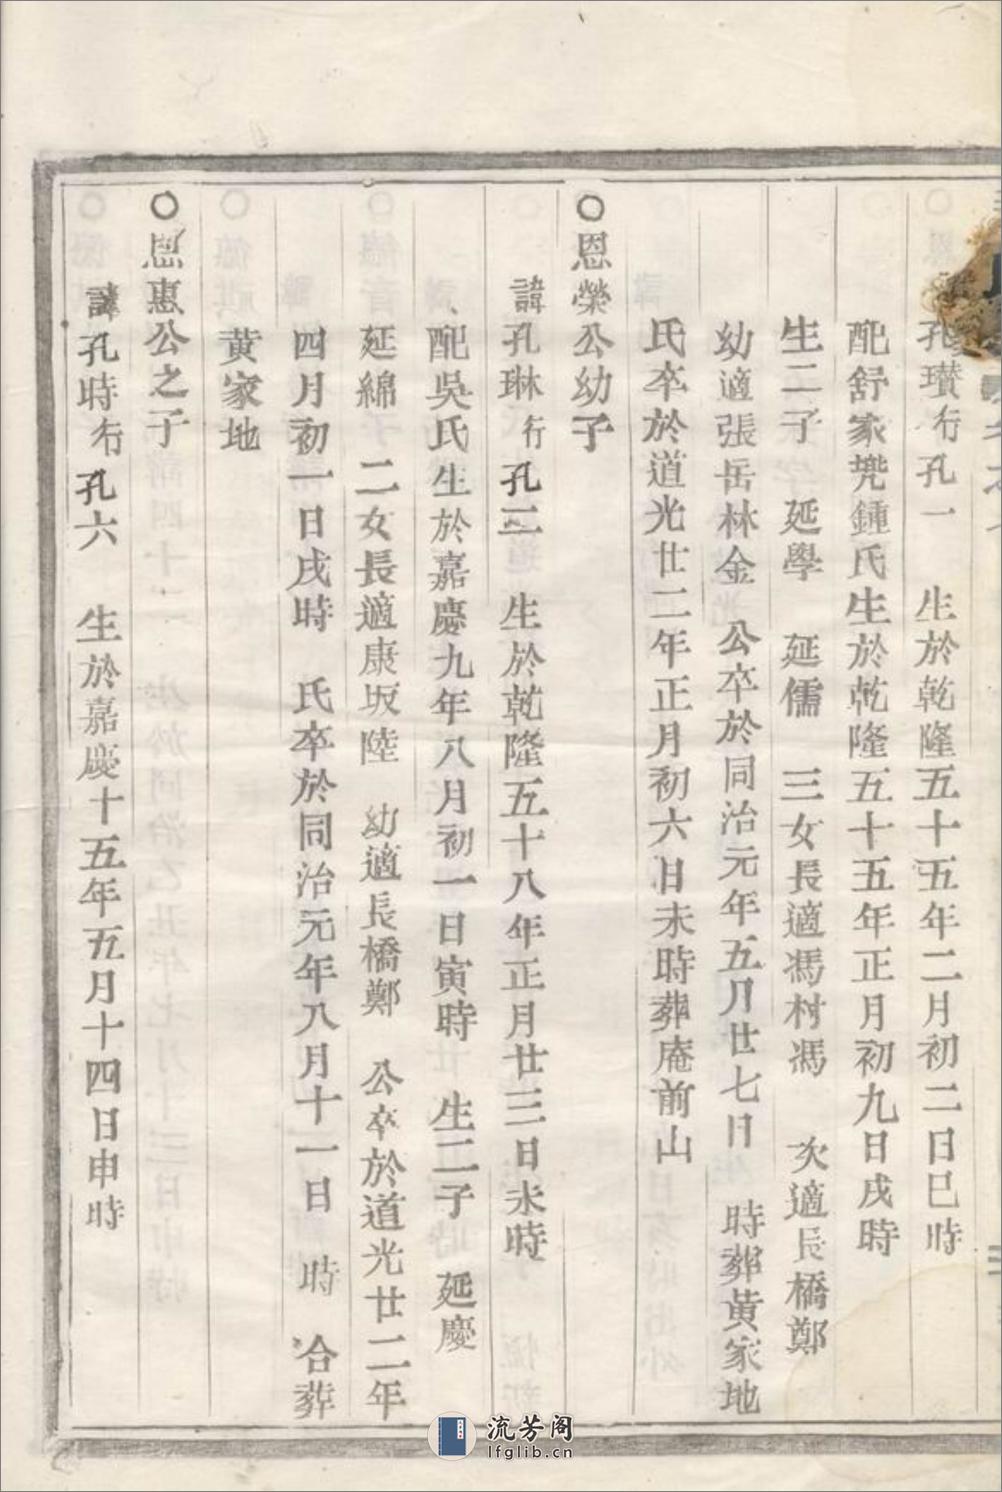 孔瓚行孔一　生於乾隆五十五年二月初二日巳時
配舒家兠鍾氏生於乾隆五十五年正月初九日戌時
生二子　延學　延儒　三女長適馮村馮　次適長橋鄭
幼適張岳林金　公卒於同治元年五月廿七日　時葬黃家地
氏卒於道光廿二年正月初六日未時葬庵前山
○恩榮公幼子
諱孔琳行孔三　生於乾隆五十八年正月廿三日未時
配吳氏生於嘉慶九年八月初一日寅時　生二子　延慶
延綿　二女長適康坂陸　幼適長橋鄭　公卒於道光廿二年
四月初一日戌時　氏卒於同治元年八月十一日　時　合葬
黃家地
○恩惠公之子
諱孔時行孔六　生於嘉慶十五年五月十四日申時
流芳阁
lfglib.cn